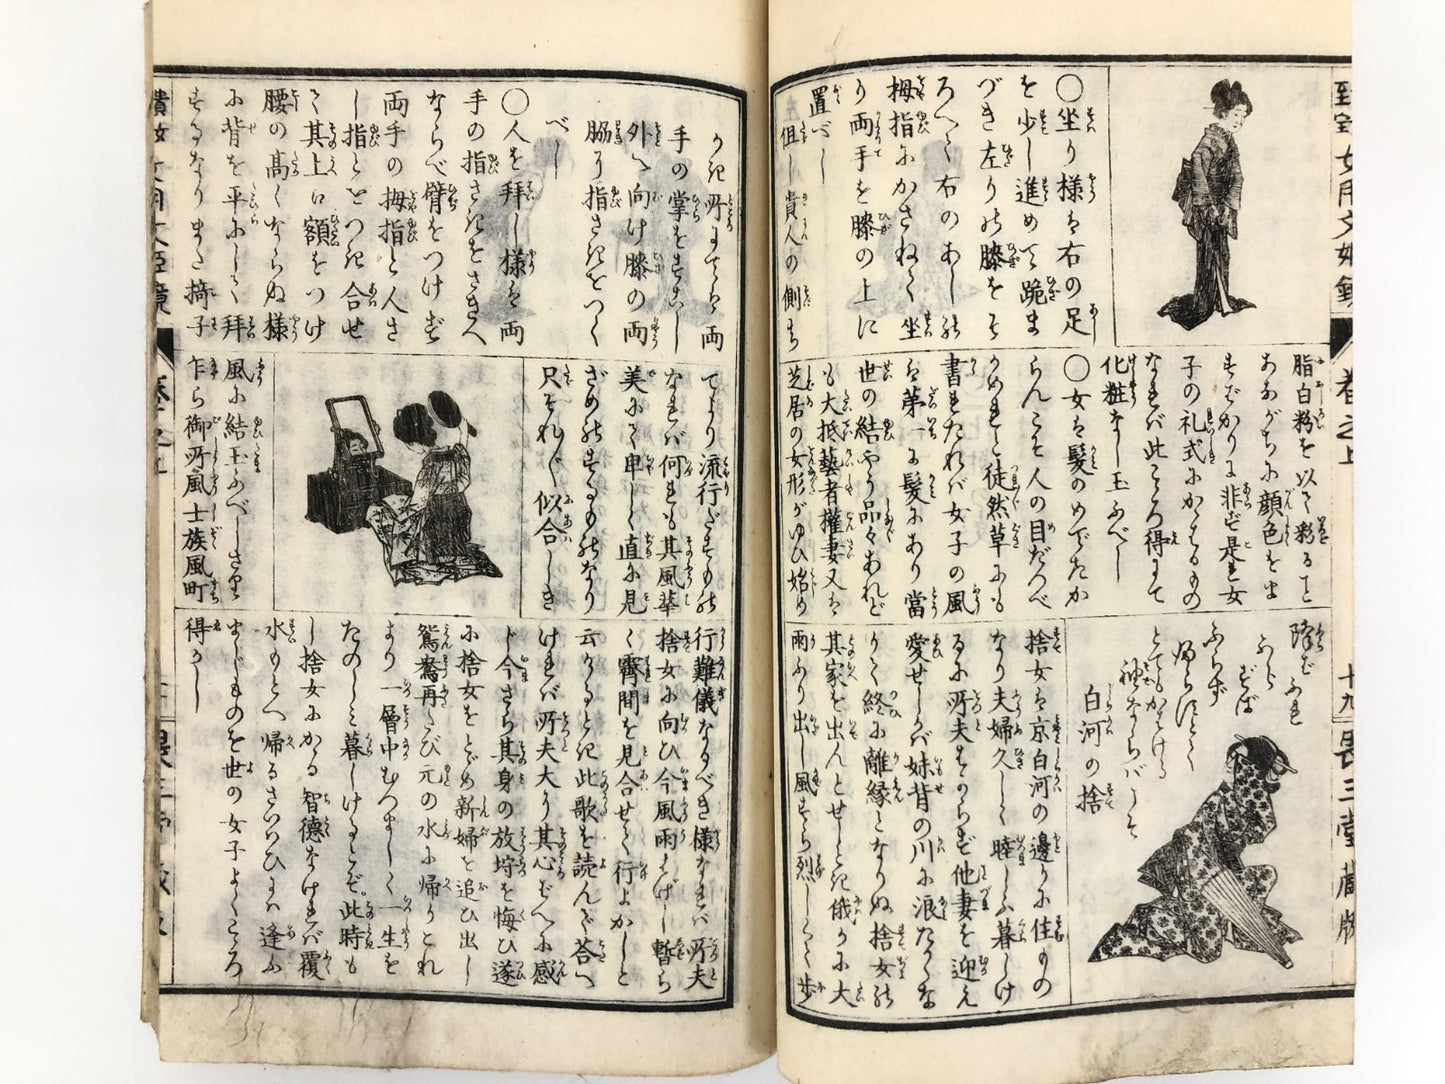 ○坐り様は右の足
を少し進めて跪ま
づき左りの膝をそ
ろへて右のあしの
拇指にかさねて坐
り両手を膝の上に
置べし
但し貴人の側ち
かき所にては両
手の掌をすこし
外へ向け膝の両
脇り指さきをつく
べし
○人を拝し様は両
手の指さきをさきへ
ならべ臂をつけず
両手の拇指と人さ
し指とをつき合せ
て其上に額をつけ
腰の高くならぬ様
に背を平にして拝
するなりまた椅子
脂白粉を以て彩ること
ああがちに顔色をま
すばかりに非ず是も女
子の礼式にかはるもの
なれば此こころ得にて
化粧をし玉ふべし
○女は髪のめでたか
らんこそ人の目だつべ
かめれと徒然草にも
書きたれバ女子の風
は第一に髪にあり当
世の結やう品々あれど
も大抵藝者権妻又は
芝居の女形がゆひ始め
てより流行だすもの
なれバ何れも其風華
美にして卑しく直に見
ざめのするものなり
只それぞれ似合しき
風に結玉ふべしさり
乍ら御所風士族風町
降ばふれ
ふらずば
ふらず
ふらずとて
とてもかはける
袖ならバこそ
白河の捨
捨女は京白河の辺りに住もの
なり夫婦久しく睦しふ暮しけ
るに所夫はからず他妻を迎え
愛せしかバ妹背の川に浪たくな
りて終に離縁となりぬ捨女の
其家を出んとせしとき俄かに大
雨ふり出し風さら烈しくして歩
行難儀なるべき様なれバ所夫
捨女に向ひ今風雨はげし暫ら
く霽間を見合せて行よかしと
云かるとき此歌を読んで答へ
けれバ所夫大り其心ばへに感
じ今さら其身の放埓を悔ひ遂
に捨女をとどめ新婦を追ひ出し
鴛鴦再たび元の水に帰りこれ
より一層中むつましくて一生を
たのしミ暮しけるとぞ此時も
し捨女にかる智徳なけれバ覆
水もとへ帰るさいひにハ逢ふ
まじものを世の女子よくこころ
得べし
巻之上
十九
三堂蔵版